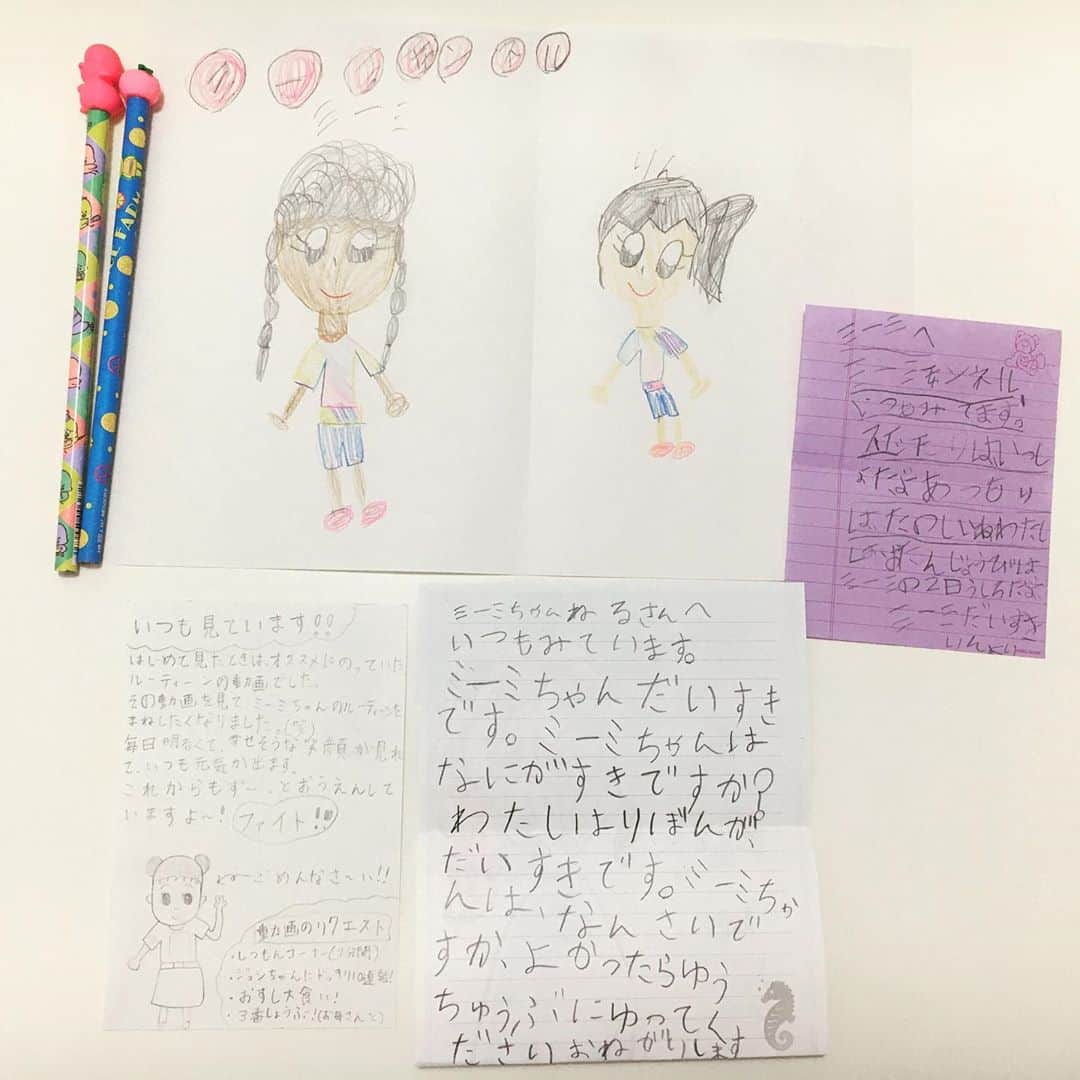 ミーミ
りん
ミーミへ
ミーミチャンネル
いつもみてます。
はたのしいねわたし
ミーミの2日うしろだよ
ミーミだいすき
りんより
いつも見ています!!
はじめて見たときは、オススメにのっていた
ルーティーンの動画でした。
その動画を見て ミーミちゃんのルーティーンを
まねしたくなりました。(笑)
毎日明るくて、幸せそうな笑顔が見れ
て、いつも元気が出ます。
これからもず〜っとおうえんして
いますよ〜! ファイト!!
ごめんなさ〜い!!
動画のリクエスト
・しつもんコーナー
・ジョンちゃんにドッキリ10連発!
・おすし大食い!
・3番しょうぶ!(お母さんと)
ミーミちゃんねるさんへ
いつもみています。
ミーミちゃんだいすき
です。ミーミちゃんは
なにがすきですか?
わたしはりぼんが、
だいすきです。ミーミちゃ
んは、なんさいで
すか、よかったらゆう
ちゅうぶにゆってく
ださいおねがいします